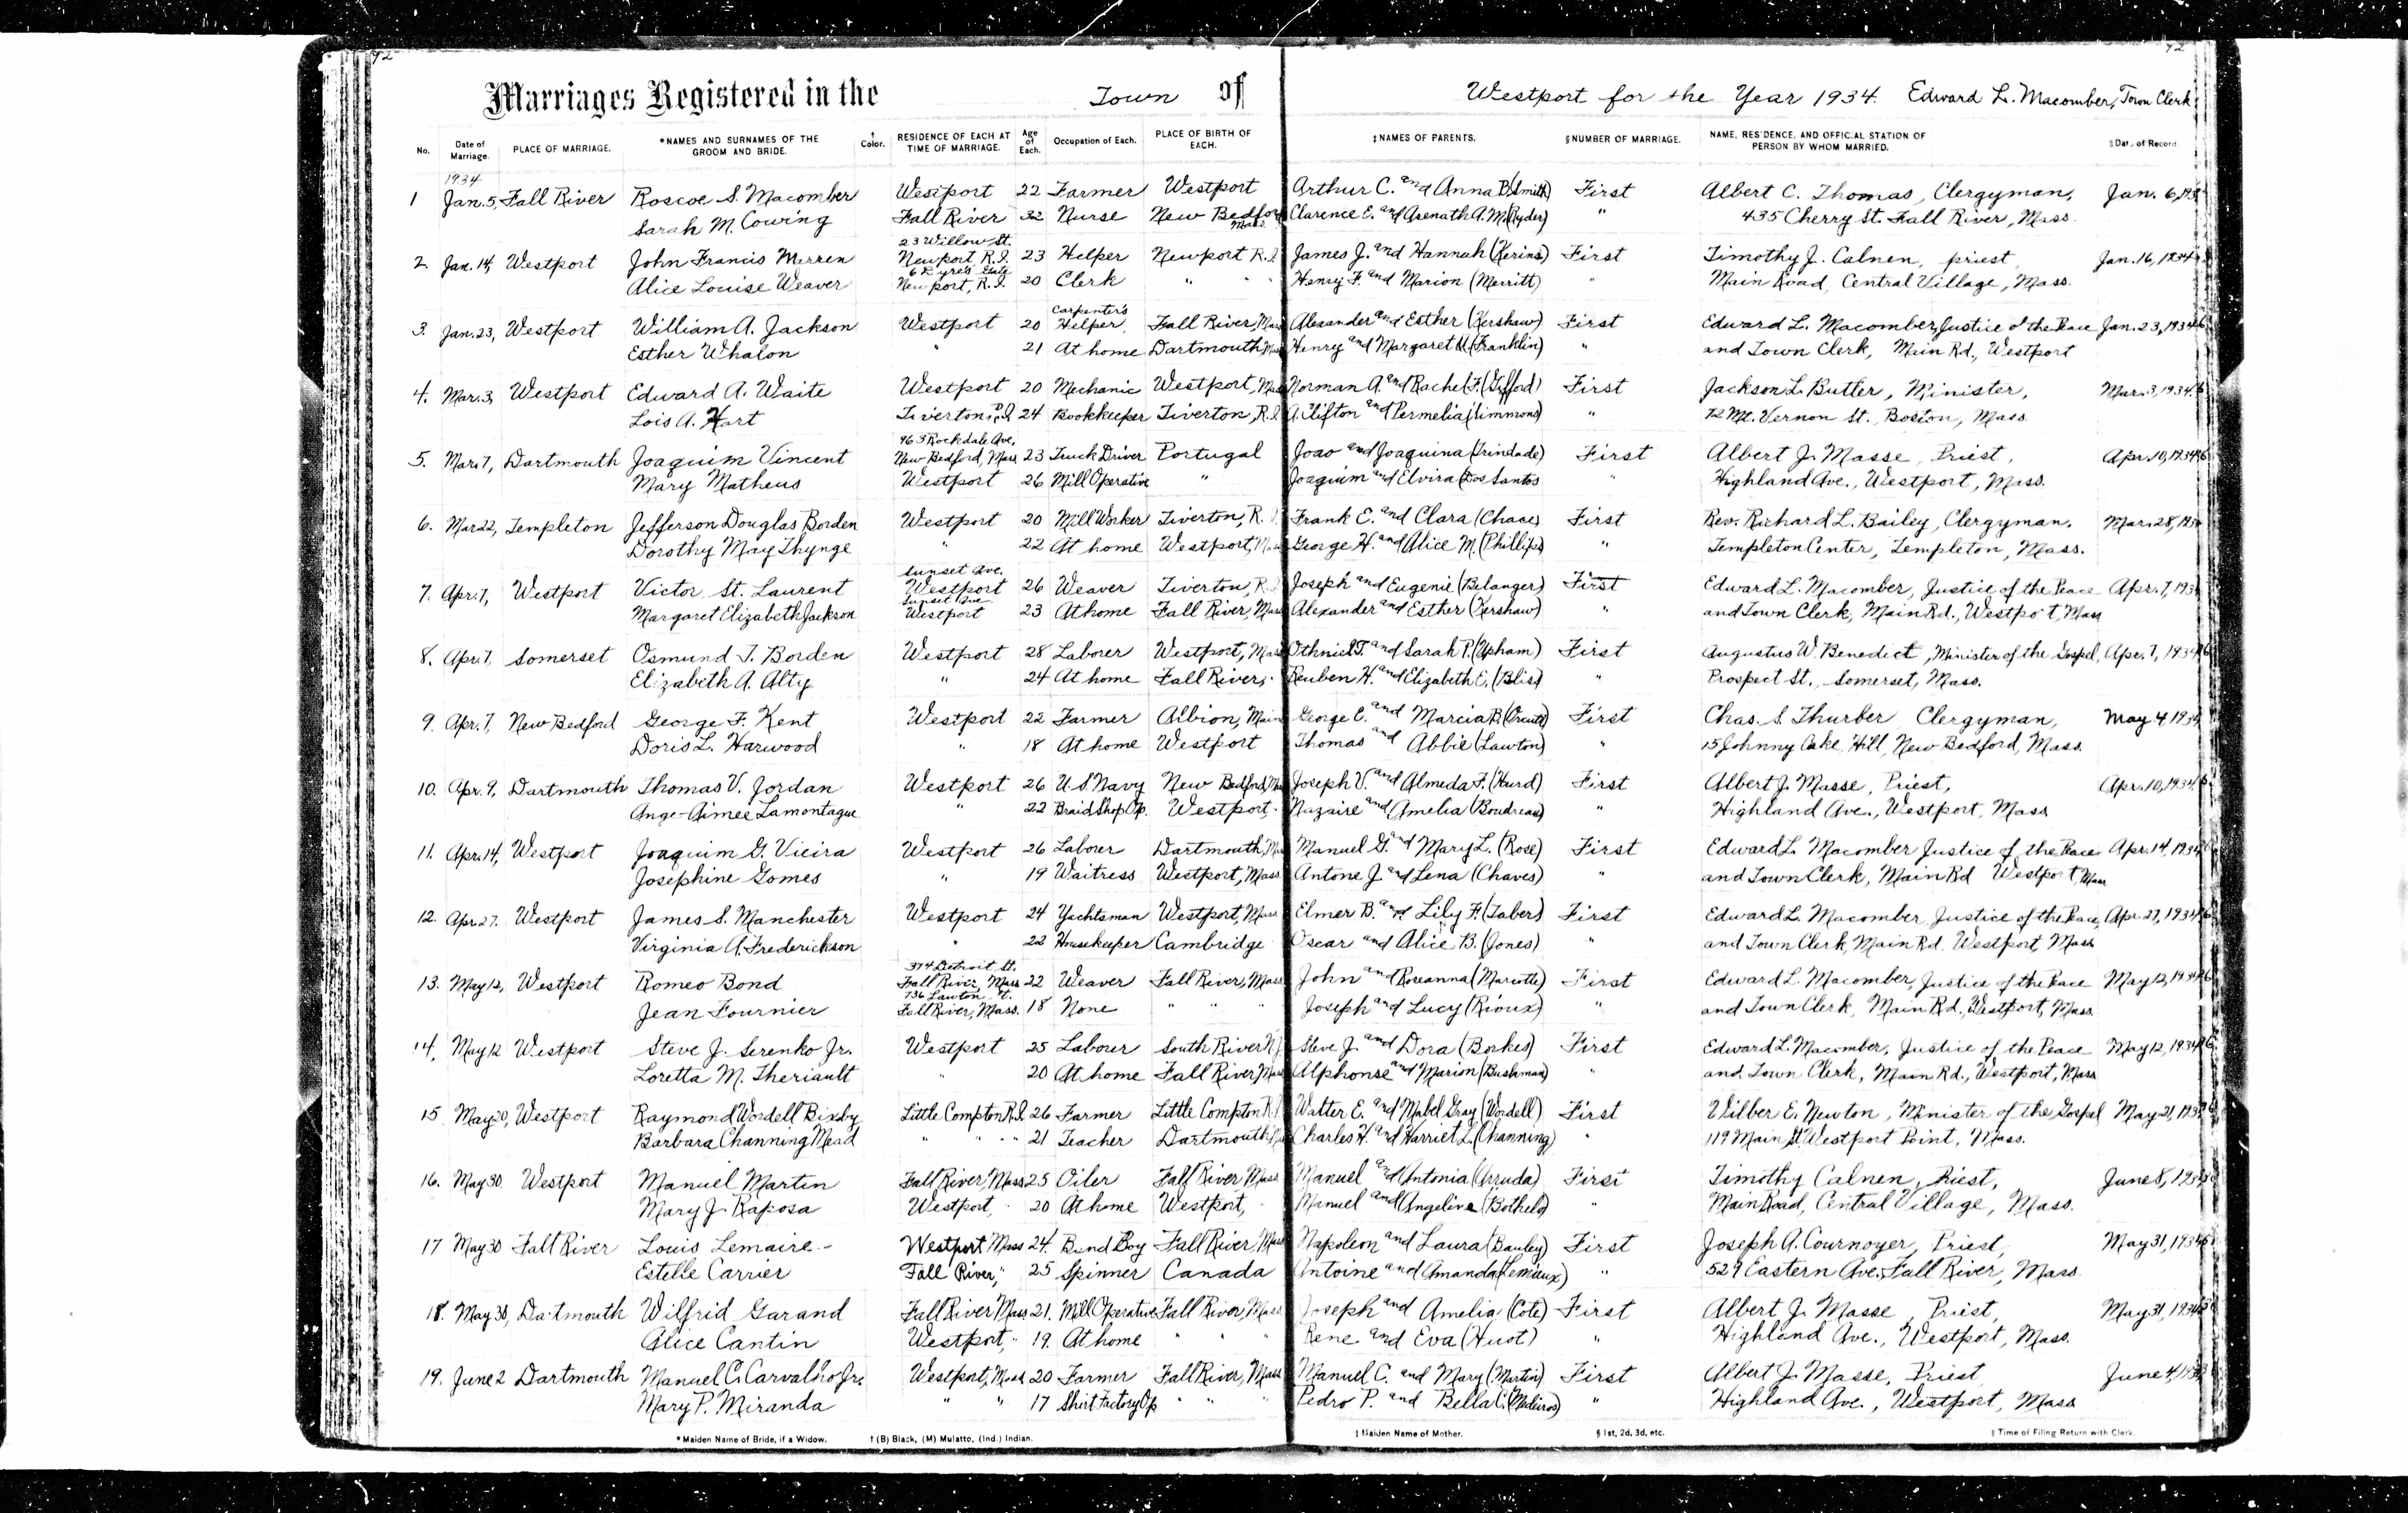 92
92
Marriages Registered in the Town of Westport for the Year 1934. Edward L. Macomber, Town Clerk
No. Date of Marriage. PLACE OF MARRIAGE. *NAMES AND SURNAMES OF THE GROOM AND BRIDE. † Color. RESIDENCE OF EACH AT TIME OF MARRIAGE. Age of Each. Occupation of Each. PLACE OF BIRTH OF EACH. ‡NAMES OF PARENTS. §NUMBER OF MARRIAGE. NAME, RESIDENCE, AND OFFICIAL STATION OF PERSON BY WHOM MARRIED. Date of Record.
1934
1 Jan. 5, Fall River Roscoe S. Macomber Westport 22 Farmer Westport Arthur C. and Anna B. (Smith) First Albert C. Thomas, Clergyman, Jan. 6,
Sarah M. Cowing Fall River 32 Nurse New Bedford Mass. Clarence E. and Asenath A. M. (Ryder) " 435 Cherry St. Fall River, Mass.
23 Willow St.
2 Jan. 14, Westport John Francis Merren Newport R.I. 23 Helper Newport R.I. James J. and Hannah (Kerins) First Timothy J. Calnen, priest Jan. 16, 1934
Alice Louise Weaver Newport, R.I. 20 Clerk " " Henry F. and Marion (Merritt) " Main Road, Central Village, Mass.
Carpenter's
3. Jan. 23, Westport William A. Jackson Westport 20 Helper, Fall River, Mass Alexander and Esther (Kershaw) First Edward L. Macomber, Justice of the Peace Jan. 23, 1934
Esther Whalon " 21 At home Dartmouth, Mass Henry and Margaret (Franklin) " and Town Clerk, Main Rd., Westport
4. Mar. 3, Westport Edward A. Waite Westport 20 Mechanic Westport, Mass Norman A. and Rachel F. (Gifford) First Jackson L. Butler, Minister, Mar. 3, 1934
Lois A. Hart Tiverton, R.I. 24 Bookkeeper Tiverton, R.I. A. Clifton and Permelia (Simmons) " 72 Mt. Vernon St. Boston, Mass.
963 Rockdale Ave,
5. Mar. 7, Dartmouth Joaquim Vincent New Bedford, Mass 23 Truck Driver Portugal Joao and Joaquina (Trindade) First Albert J. Masse, Priest, Apr. 10, 1934
Mary Matheus Westport 26 Mill Operative " Joaquim and Elvira (Dos Santos " Highland Ave., Westport, Mass.
6. Mar. 22, Templeton Jefferson Douglas Borden Westport 20 Mill Worker Tiverton, R.I. Frank E. and Clara (Chace) First Rev. Richard L. Bailey, Clergyman. Mar. 28,
Dorothy May Thynge " 22 At home Westport, Mass George H. and Alice M. (Phillips) " Templeton Center, Templeton, Mass.
Sunset Ave.
7. Apr. 7, Westport Victor St. Laurent Westport 26 Weaver Tiverton, R.I. Joseph and Eugenie (Belanger) First Edward L. Macomber, Justice of the Peace Apr. 7,
Sunset Ave
Margaret Elizabeth Jackson Westport 23 At home Fall River, Mass Alexander and Esther (Kershaw) " and Town Clerk, Main Rd., Westport, Mass
8. Apr. 7, Somerset Osmund T. Borden Westport 28 Laborer Westport, Mass Othniel T. and Sarah P. (Upham) First Augustus W. Benedict, Minister of the Gospel, Apr. 7, 1934
Elizabeth A. Alty " 24 At home Fall River, " Reuben H. and Elizabeth E. (Bliss) " Prospect St., Somerset, Mass.
9. Apr. 7, New Bedford George F. Kent Westport 22 Farmer Albion, Maine George E. and Marcia B. (Orcutt) First Chas. S. Thurber Clergyman, May 4, 1934
Doris L. Harwood " 18 At home Westport Thomas and Abbie (Lawton) " 15 Johnny Cake Hill, New Bedford, Mass.
10. Apr. 9, Dartmouth Thomas V. Jordan Westport 26 U.S. Navy New Bedford, Mass Joseph V. and Almeda F. (Hurd) First Albert J. Masse, Priest, Apr. 10, 1934
Ange-Aimee Lamontague " 22 Braid Shop Op. Westport " Nazaire and Amelia (Boudreau) " Highland Ave., Westport, Mass
11. Apr. 14, Westport Joaquim G. Vieira Westport 26 Laborer Dartmouth, Mass Manuel G. and Mary L. (Rose) First Edward L. Macomber Justice of the Peace Apr. 14, 1934
Josephine Gomes " 19 Waitress Westport, Mass Antone J. and Lena (Chaves) " and Town Clerk, Main Rd Westport Mass
12. Apr. 27. Westport James S. Manchester Westport 24 Yachtsman Westport, Mass Elmer B. and Lily F. (Taber) First Edward L. Macomber, Justice of the Peace, Apr. 27, 1934
Virginia A. Frederickson " 22 Housekeeper Cambridge Oscar and Alice B. (Jones) " and Town Clerk, Main Rd. Westport, Mass
374 Detroit St.
13. May 12, Westport Romeo Bond Fall River, Mass 22 Weaver Fall River, Mass John and Roseanna (Marcotte) First Edward L. Macomber, Justice of the Peace May 12, 1934
736 Lawton St.
Jean Fournier Fall River, Mass. 18 None " " " Joseph and Lucy (Rioux) " and Town Clerk, Main Rd., Westport, Mass.
14, May 12 Westport Steve J. Serenko Jr. Westport 25 Laborer South River N.J. Steve J. and Dora (Borkes) First Edward L. Macomber, Justice of the Peace May 12, 1934
Loretta M. Theriault " 20 At home Fall River, Mass Alphonse and Marion (Bushman) " and Town Clerk, Main Rd., Westport, Mass
15 May 20, Westport Raymond Wordell Bixby Little Compton R.I. 26 Farmer Little Compton R.I. Walter E. and Mabel Gray (Wordell) First Wilber E. Newton, Minister of the Gospel May 21,
Barbara Channing Mead " " " " 21 Teacher Dartmouth Charles H. and Harriet L. (Channing) " 119 Main St. Westport Point, Mass.
16. May 30 Westport Manuel Martin Fall River, Mass 25 Oiler Fall River Mass Manuel and Antonia (Arruda) First Timothy Calnen, Priest, June 8,
Mary J. Raposa Westport, " 20 At home Westport, " Manuel and Angelina (Bothelo) " Main Road, Central Village, Mass.
17 May 30 Fall River Louis Lemaire - Westport Mass 24. Band Boy Fall River, Mass Napoleon and Laura (Bauley) First Joseph A. Cournoyer, Priest, May 31, 1934
Estelle Carrier Fall River, " 25 Spinner Canada Antoine and Amanda (Lemieux) " 529 Eastern Ave. Fall River, Mass.
18. May 30, Dartmouth Wilfrid Garand Fall River Mass 21. Mill Operative Fall River, Mass Joseph and Amelia (Cote) First Albert J. Masse, Priest, May 31, 1934
Alice Cantin Westport, " 19. At home " " " Rene and Eva (Huot) " Highland Ave., Westport, Mass.
19. June 2 Dartmouth Manuel C. Carvalho Jr. Westport, Mass 20 Farmer Fall River, Mass Manuel C. and Mary (Martin) First Albert J. Masse, Priest June 4,
Mary P. Miranda " " 17 Shirt Factory Op " " " Pedro P. and Bella C. (Medeiros) " Highland Ave., Westport, Mass
*Maiden Name of Bride, if a Widow. † (B) Black, (M) Mulatto, (Ind.) Indian. ‡ Maiden Name of Mother. § 1st, 2d, 3d, etc. Time of Filing Return with Clerk.